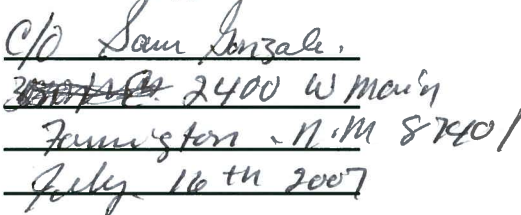 C/O Sam Gonzale.
2400 W Main
Farmington . N.M 87401
July 16th 2007